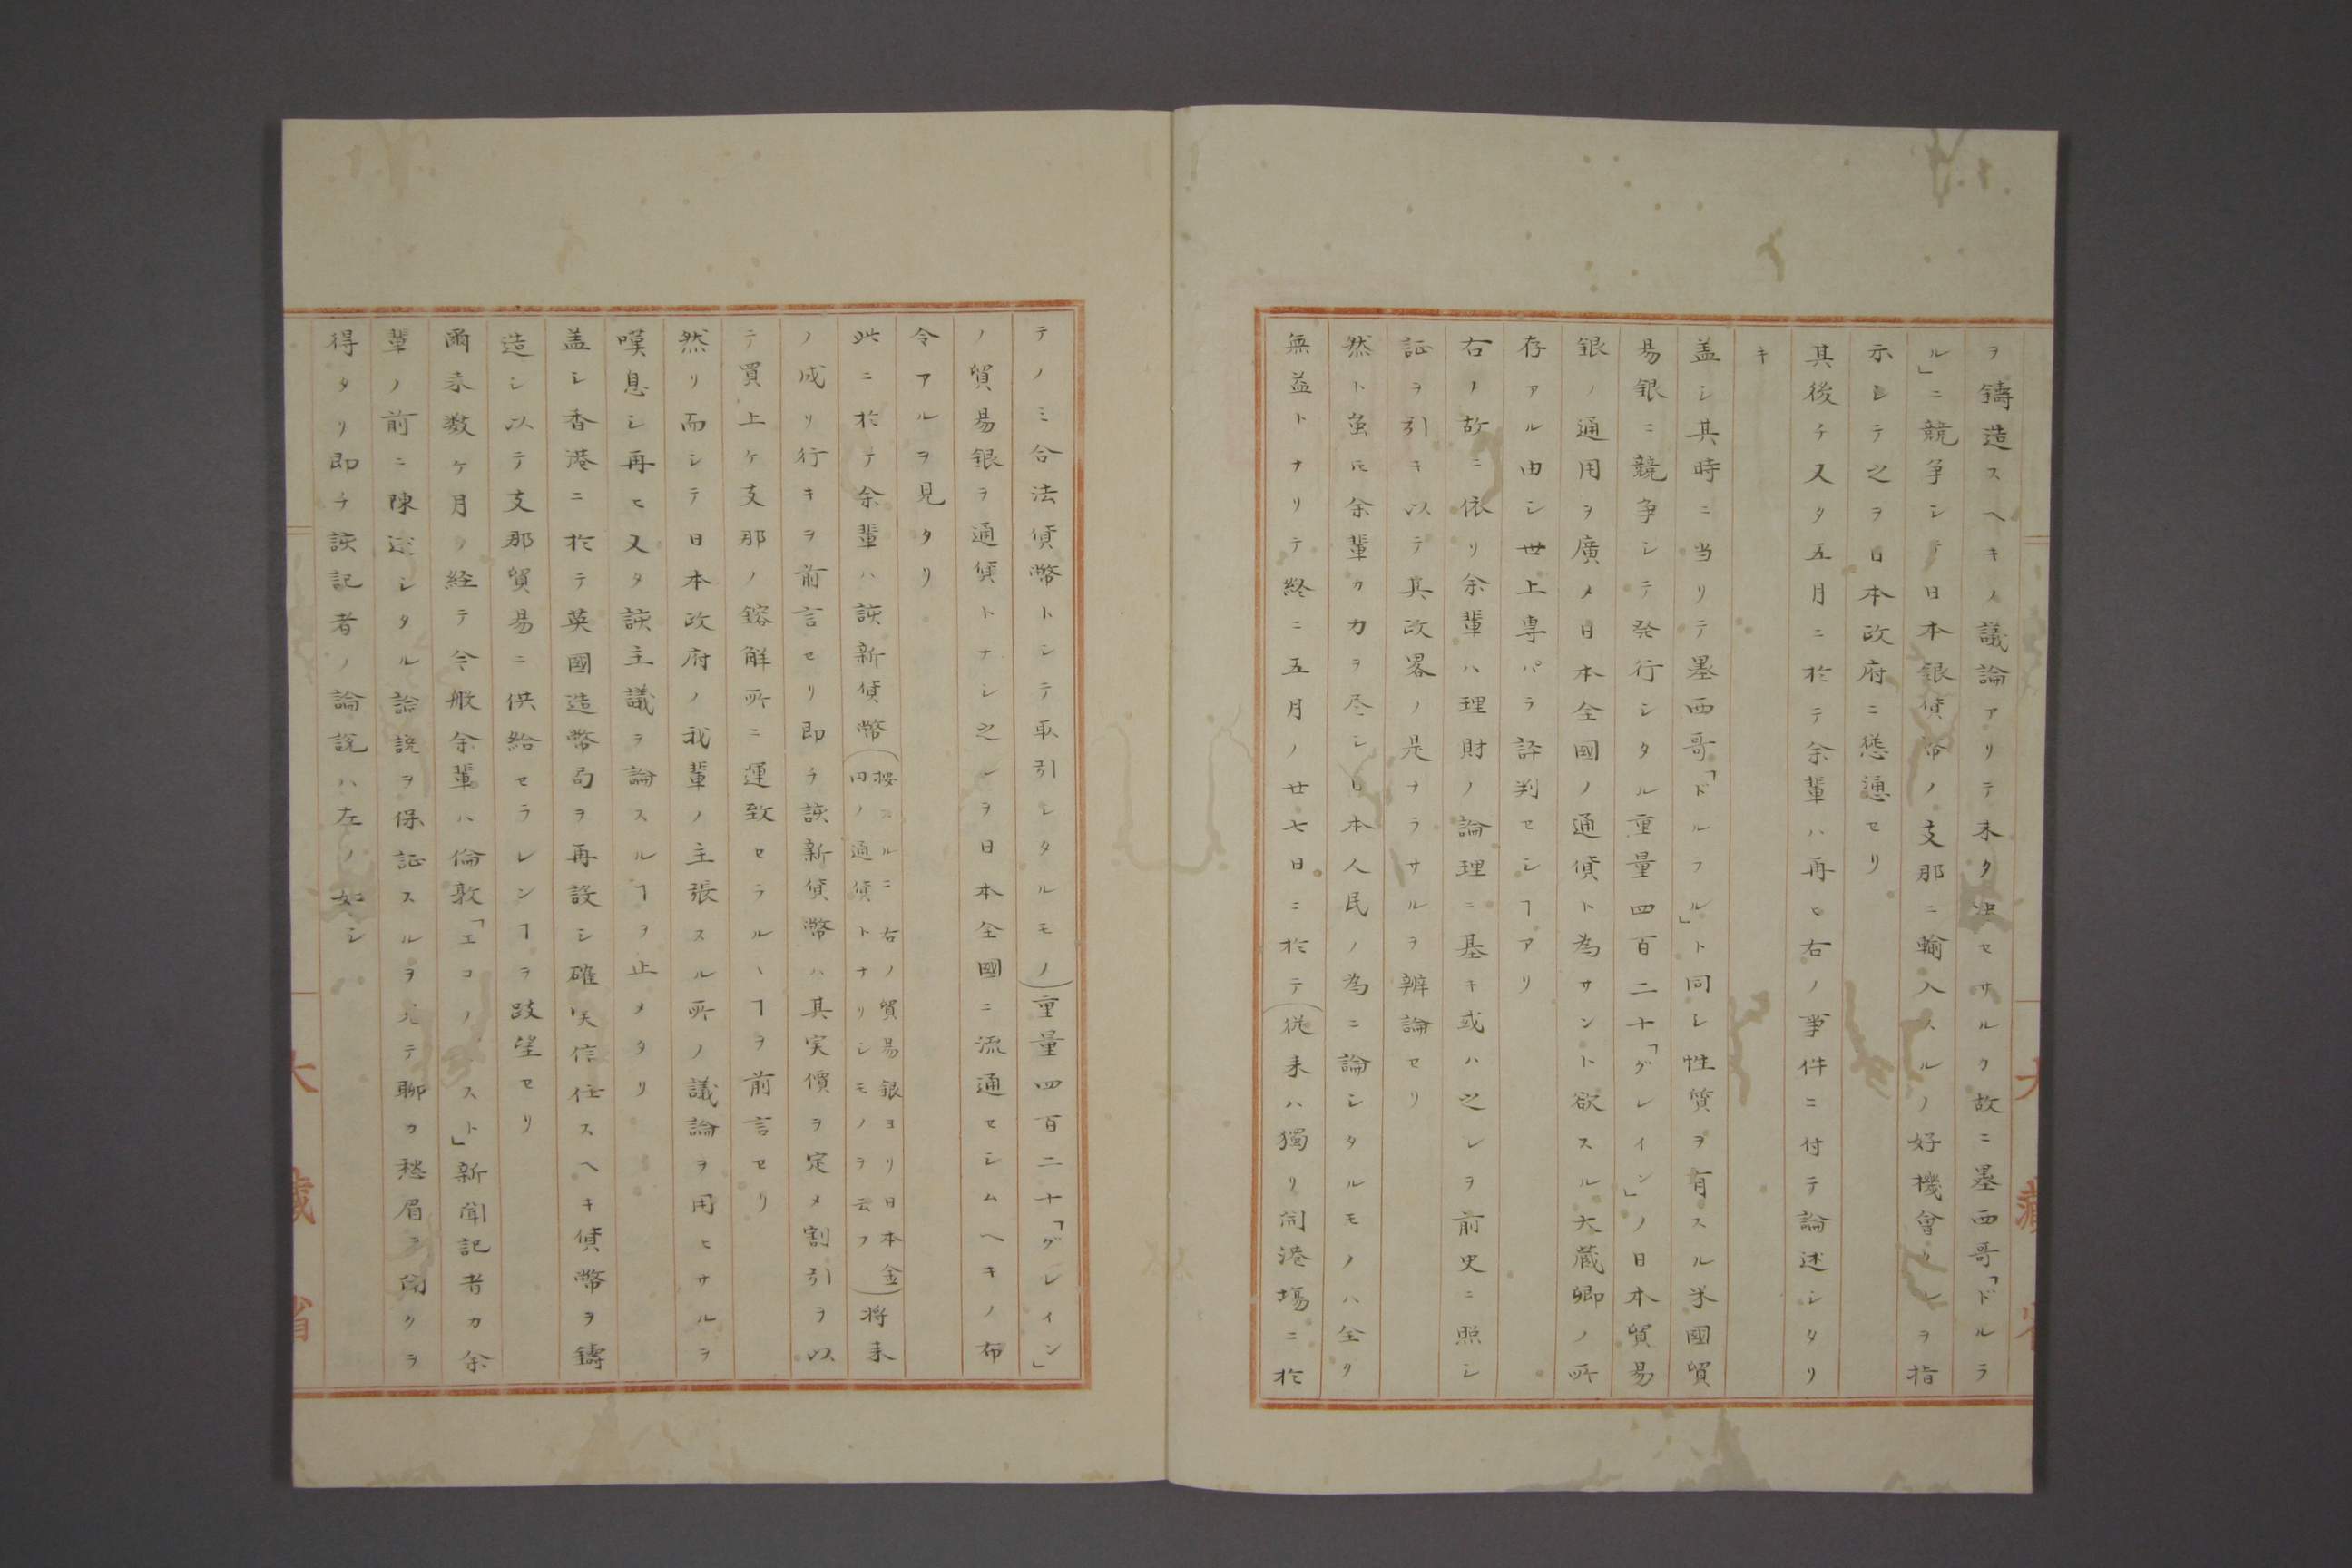 ヲ鑄造スヘキノ議論アリテ未タ決セサルク故ニ墨西哥「ドルラ
ル」ニ競争シテ日本銀貨幣ノ支那ニ輸入スルノ好機會タレヲ指
示シテ之ヲ日本政府ニ慫慂セリ
其後チ又タ五月ニ於テ余輩ハ再ヒ右ノ事件ニ付テ論述シタリ
キ
盖シ其時ニ当リテ墨西哥「ドルラル」ト同シ性質ヲ有スル米國貿
易銀ニ競争シテ発行シタル重量四百二十「グレイン」ノ日本貿易
銀ノ通用ヲ廣メ日本全國ノ通貨ト為サント欲スル大蔵卿ノ所
存アル由シ世上専パラ評判セシヿアリ
右ノ故ニ依リ余輩ハ理財ノ論理ニ基キ或ハ之レヲ前史ニ照シ
証ヲ引キ以テ其政畧ノ是ナラサルヲ辨論セリ
然ト虽𪜈余輩カ力ヲ尽シ日本人民ノ為ニ論シタルモノハ全ク
無益トナリテ終ニ五月ノ廿七日ニ於テ(従来ハ獨リ開港場ニ於
テノミ合法貨幣トシテ取引シタルモノ)重量四百二十「グレイン」
ノ貿易銀ヲ通貨トナシ之レヲ日本全國ニ流通セシムヘキノ布
令アルヲ見タリ
此ニ於テ余輩ハ該新貨幣(按スルニ右ノ貿易銀ヨリ日本金
円ノ通貨トナリシモノヲ云フ)将来
ノ成リ行キヲ前言セリ即チ該新貨幣ハ其実價ヲ定メ割引ヲ以
テ買上ケ支那ノ鎔解所ニ運致セラルヽヿヲ前言セリ
然リ而シテ日本政府ノ我輩ノ主張スル所ノ議論ヲ用ヒサルヲ
嘆息シ再ヒ又タ該主議ヲ論スルヿヲ止メタリ
盖シ香港ニ於テ英國造幣局ヲ再設シ確実信任スヘキ貨幣ヲ鑄
造シ以テ支那貿易ニ供給セラレンヿヲ跂望セリ
爾来数ケ月ヲ経テ今般余輩ハ倫敦「エコノミスト」新聞記者カ余
輩ノ前ニ陳述シタル論説ヲ保証スルヲ見テ聊カ愁眉ヲ開クヲ
得タリ即チ該記者ノ論説ハ左ノ如シ
大藏省